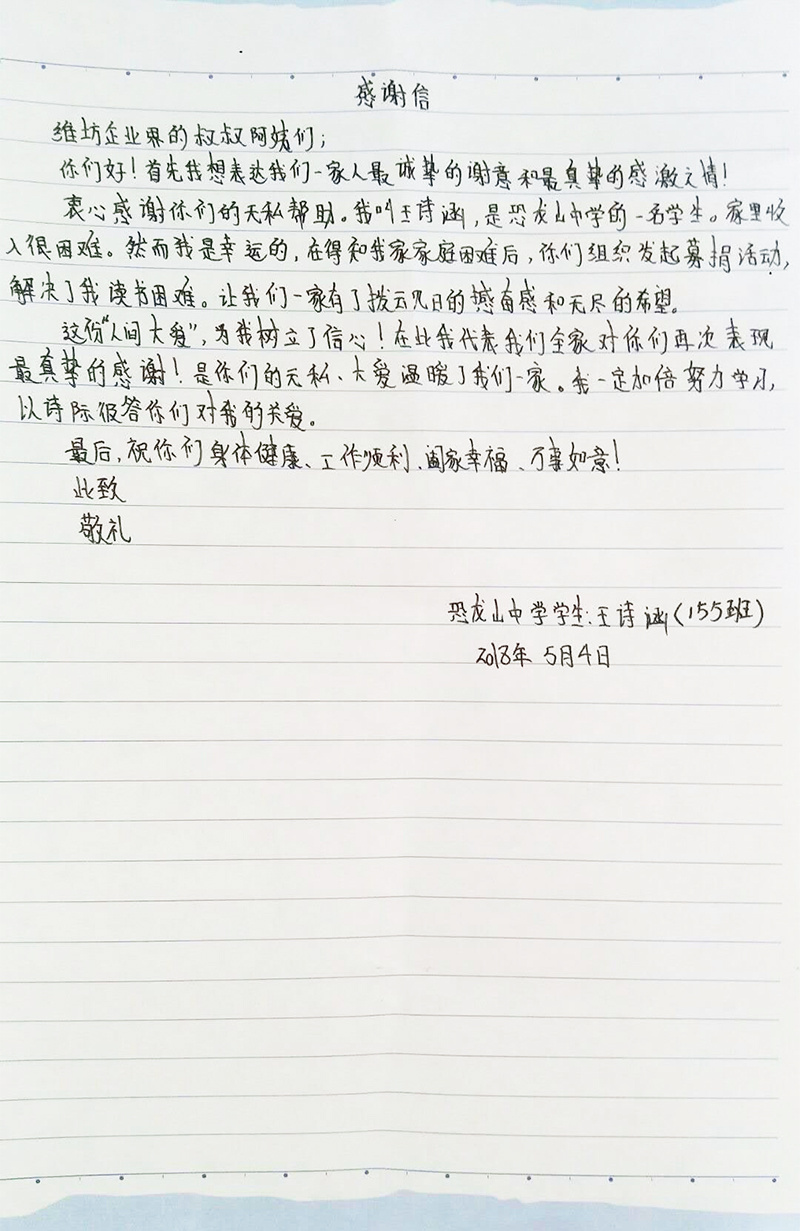 感谢信
潍坊企业界的叔叔阿姨们;
你们好!首先我想表达我们一家人最诚挚的谢意和最真挚的感激之情!
衷心感谢你们的无私帮助。我叫王诗涵,是恐龙山中学的一名学生。家里收
入很困难。然而我是幸运的,在得知我家家庭困难后,你们组织发起募捐活动,
解决了我读书困难。让我们一家有了拨云见日的感和无尽的希望。
这份“人间大爱”,为我树立了信心!在此我代表我们全家对你们再次表现
最真挚的感谢!是你们的无私、大爱温暖了我们一家。我一定加倍努力学习,
以诗际报答你们对我的关爱。
最后,祝你们身体健康、工作顺利、阖家幸福、万事如意!
此致
敬礼
恐龙山中学学生:王诗涵(155班)
2018年5月4日